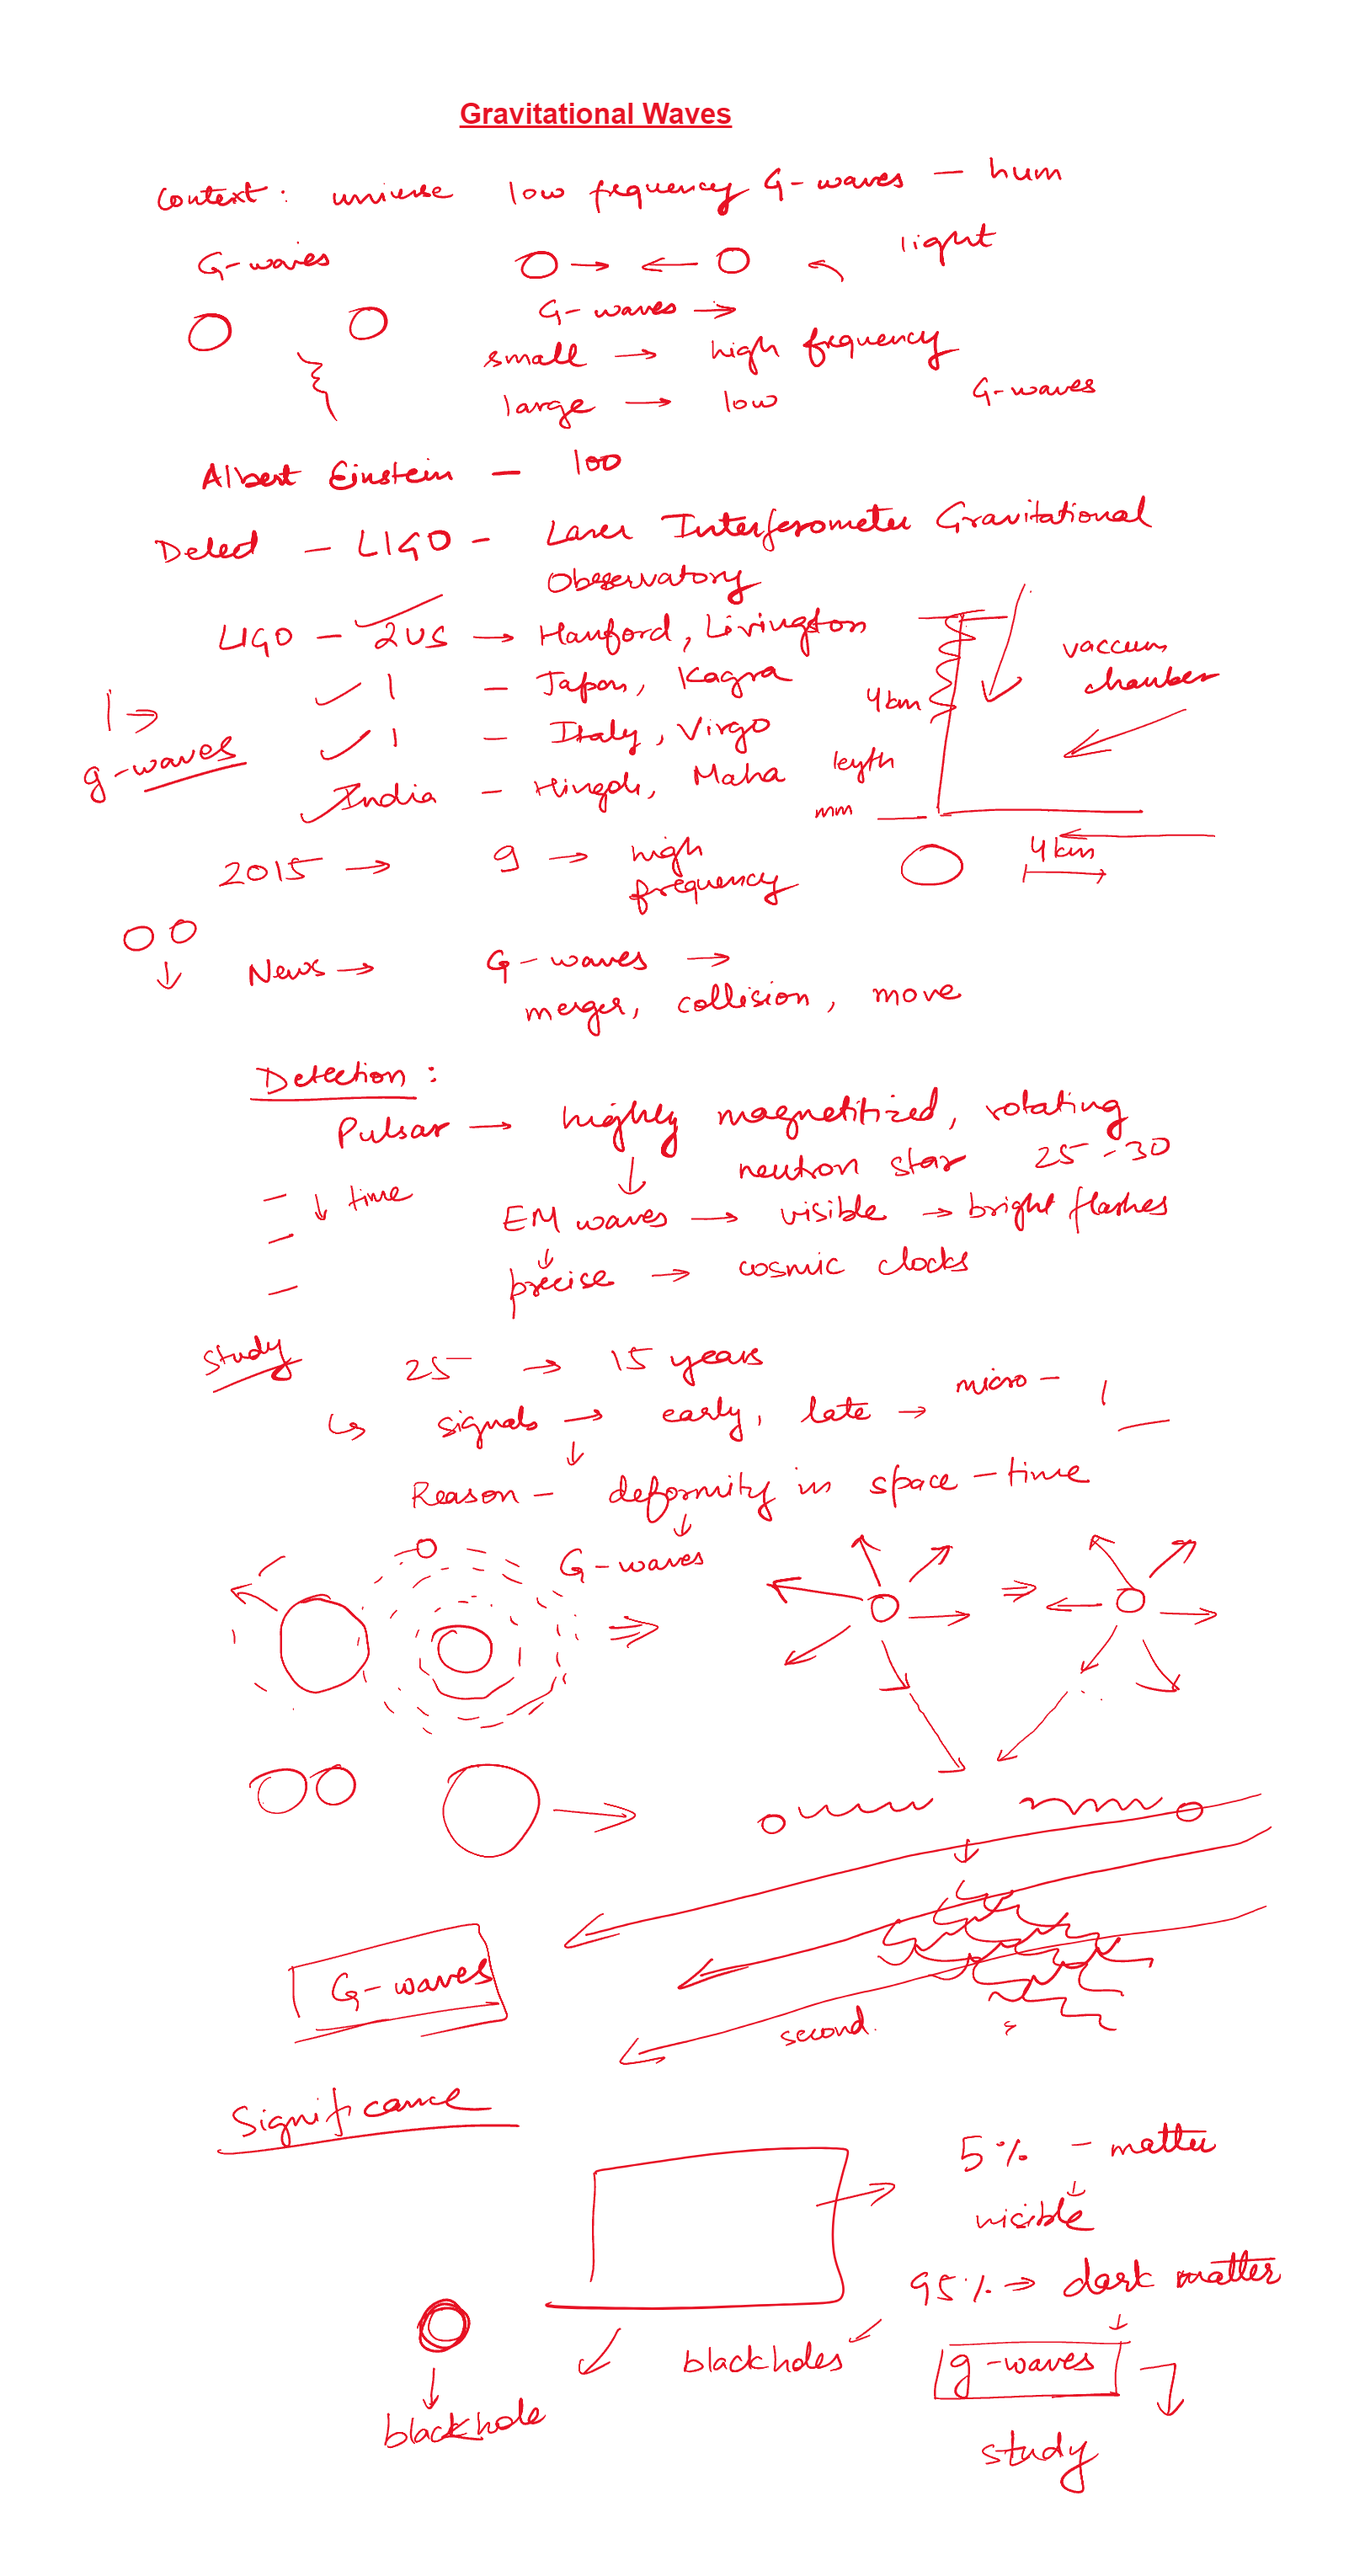 Gravitational Waves
Context: universe low frequency G-waves - hum
G-waves light
G-waves →
small → high frequency
large → low G-waves
Albert Einstein - 100
- LIGO - Laser Interferometer Gravitational
Observatory
LIGO - 2 US → Hanford, Livingston
1 - Japan, Kagra
1 - Italy, Virgo
India - Hingoli, Maha
1 →
g-waves
vaccum
chamber
4km
length
mm
4km
2015 → 9 → high
frequency
News → G-waves →
merger, collision, move
Detection:
Pulsar → highly magnetitized, rotating
neutron star 25-30
↓ time
EM waves → visible → bright flashes
precise → cosmic clocks
Study 25 → 15 years
signals → early, late → micro -
Reason - deformity in space-time
G-waves
G-waves
second.
Significance
5% - matter
visible
95% → dark matter
blackholes
g-waves
blackhole
study